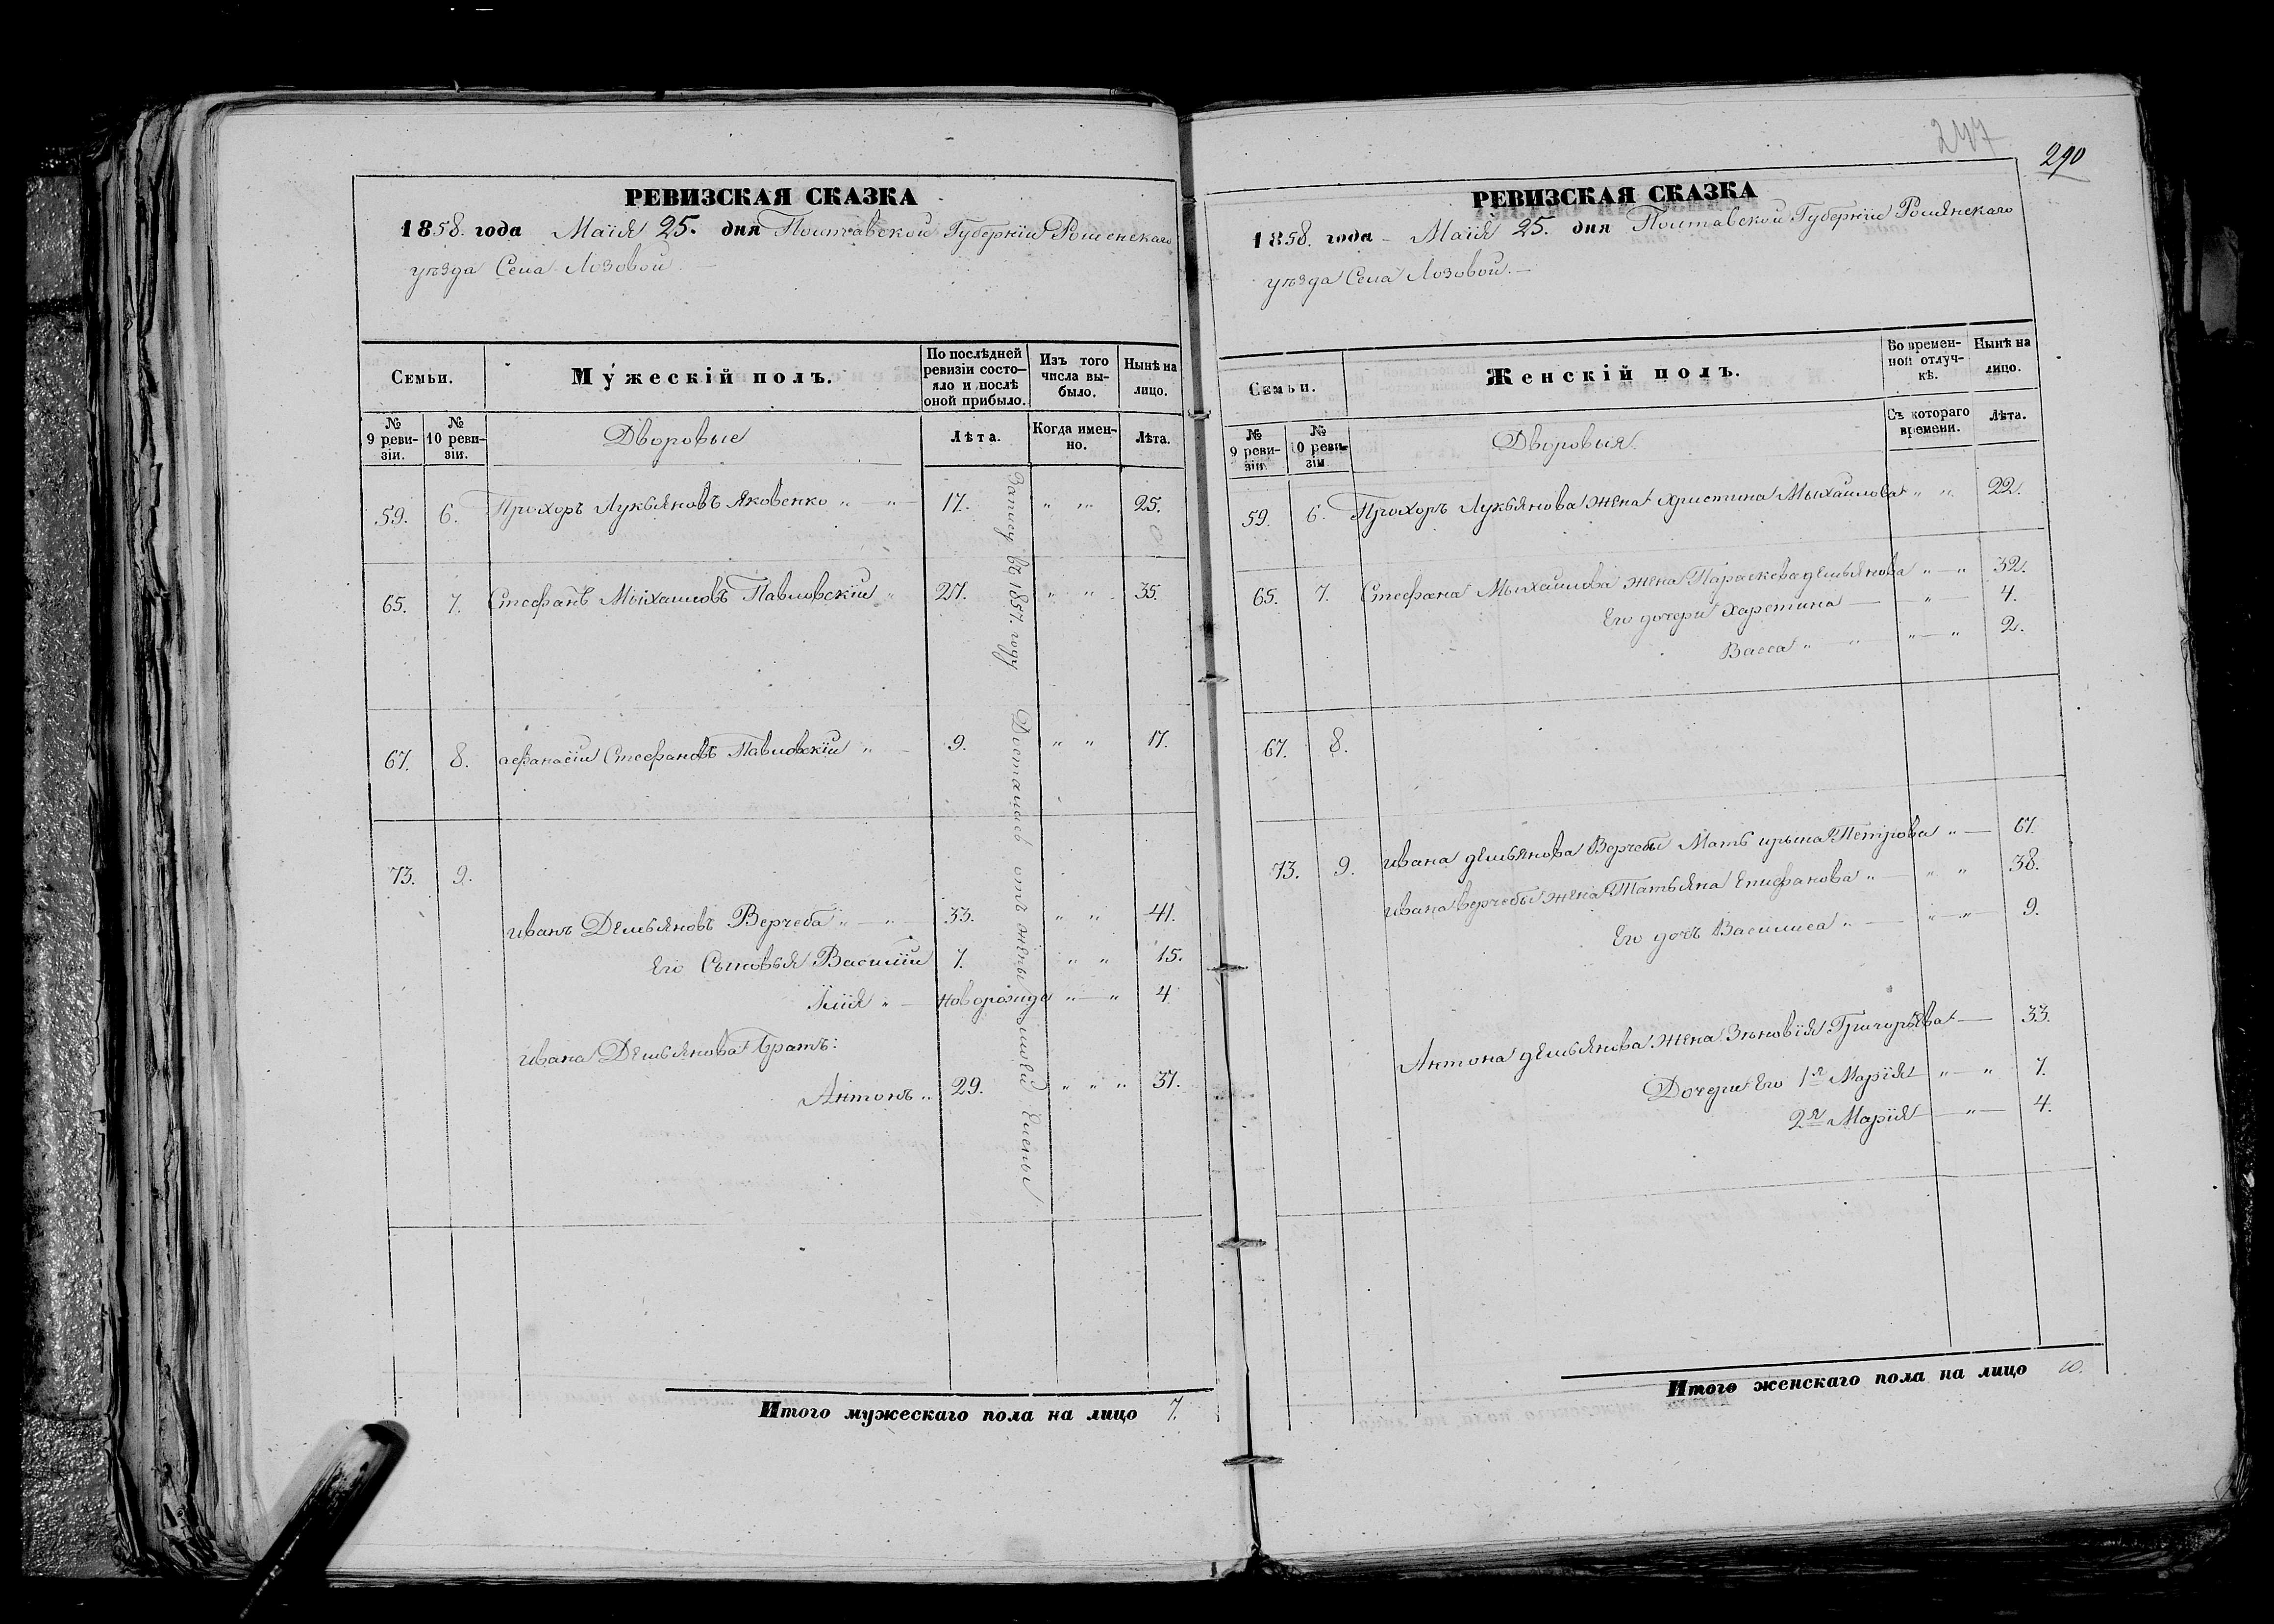 РЕВИЗСКАЯ СКАЗКА
1858. года Маія 25. дня Полтавской Губерніи Роменскаго
уѣзда Села Лозовой. —
Семьи.
Мужескій полъ.
По послѣдней ревизіи состо-
яло и послѣ
оной прибыло.
Изъ того
числа вы-
было.
Нынѣ на
лицо.
№
9 реви-
зіи.
№
10 реви-
зіи.
Дворовые
Лѣта.
Когда имен-
но.
Лѣта.
59. 6. Прохоръ Лукьяновъ Яковенко „ — „ — 17. „ „ 25.
65. 7. Стефанъ Мыхаиловъ Павловскій „ 27. „ „ 35.
67. 8. афанасіи Стефановъ Павловскіи „ — 9. „ „ 17.
73. 9.
иванъ Демьяновъ Верчеба „ — „ — 33. „ „ 41.
Его Сыновья Василіи 7. „ „ 15.
Илія „ — новорожде „ — „ 4
ивана Демьянова братъ:
Антонъ „ 29. „ „ „ 37.
въ 1857. году Достались отъ жены Елены
Итого мужескаго пола на лицо 7.
247
290
РЕВИЗСКАЯ СКАЗКА
1858. года - Маія 25. дня Полтавской Губерніи Ромянскаго
уѣзда Села Лозовой. —
Семьи.
Женскій полъ.
Во времен-
ной отлуч-
кѣ.
Нынѣ на
лицо.
№
9 реви-
зіи.
№
10 реви-
зіи
Дворовыя.
Съ котораго
времени.
Лѣта.
59. 6. Прохоръ Лукьянова жена христина Мыхаилова „ „ 22.
65. 7. Стефана Мыхаилова жена Параскева демьянова „ — „ 32.
Его дочери харетина — „ — 4.
Васса „ — „ — „ — „ 2.
67. 8.
73. 9. ивана демьянова Верчебы Мать ирына Петрова „ — 67.
ивана верчебы жена Татьяна Епифанова „ — „ „ 38.
Его дочъ Василиса „ — „ — „ — 9.
Антона демьянова жена Зѣновія Григорьева — 33.
Дочери Его 1я Марія „ — „ 7.
2я Марія — „ — 4.
Итого женскаго пола на лицо 10.